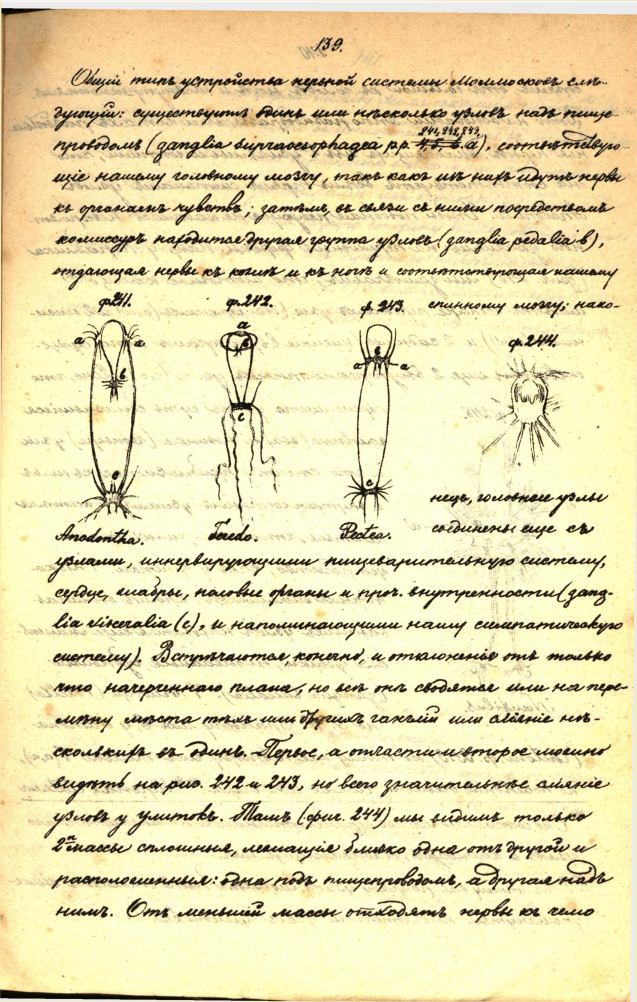 139.
Общій типъ устройства нервной системы Моллюсковъ слѣ-
дующій: существуютъ одинъ или нѣсколько узловъ надъ пище
241, 242, 243.
проводомъ (ganglia supraoesophagea рр. а), соотвѣтствую-
щіе нашему головному мозгу, такъ какъ изъ нихъ идутъ нервы
къ органамъ чувствъ; затѣмъ, въ связи съ ними посредствомъ
комиссуръ находится другая группа узловъ (ganglia pedalia в),
отдающая нервы къ кожѣ и къ ногѣ и соотвѣтствующая нашему
ф.241. ф.242. ф.243. спинному мозгу; нако-
ф.244.
a a b c
a b c
a b a c
нецъ, головные узлы
Anodontha. Teredo. Pecten. соединены еще съ
узлами, иннервирующими пищеварительную систему,
сердце, жабры, половые органы и проч. внутренности (gang-
lia visceralia (c), и напоминающими нашу симпатическую
систему). Встрѣчаются, конечно, и отклоненія отъ только
что начерченнаго плана, но всѣ онѣ сводятся или на пере-
мѣну мѣста тѣхъ или другихъ ганглій или сліяніе нѣ-
сколькихъ въ одинъ. Первое, а отчасти и второе можно
видѣть на рис. 242 и 243, но всего значительнѣе сліяніе
узловъ у улитокъ. Тамъ (фиг. 244) мы видимъ только
2 массы сплошныя, лежащіе близко одна отъ другой и
расположенныя: одна подъ пищепроводомъ, а другая надъ
нимъ. Отъ меньшей массы отходятъ нервы къ чело